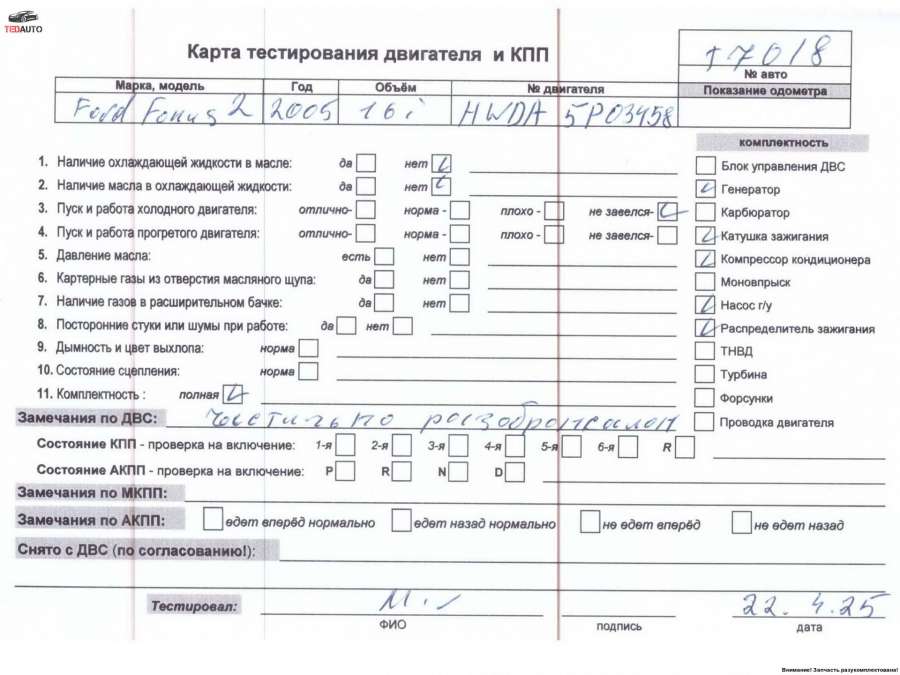 TEDAUTO
Карта тестирования двигателя и КПП
17018
№ авто
Марка, модель Год Объём № двигателя Показание одометра
Ford Fokus 2 2005 16 i HWDA 5P03458
комплектность
1. Наличие охлаждающей жидкости в масле: да нет
Блок управления ДВС
2. Наличие масла в охлаждающей жидкости: да нет
Генератор
3. Пуск и работа холодного двигателя: отлично- норма - плохо - не завелся-
Карбюратор
4. Пуск и работа прогретого двигателя: отлично- норма - плохо - не завелся-
Катушка зажигания
5. Давление масла: есть нет
Компрессор кондиционера
6. Картерные газы из отверстия масляного щупа: да нет
Моновпрыск
7. Наличие газов в расширительном бачке: да нет
Насос г/у
8. Посторонние стуки или шумы при работе: да нет
Распределитель зажигания
9. Дымность и цвет выхлопа: норма
ТНВД
10. Состояние сцепления: норма
Турбина
11. Комплектность : полная
Форсунки
Замечания по ДВС: частично разобран
Проводка двигателя
Состояние КПП - проверка на включение: 1-я 2-я 3-я 4-я 5-я 6-я R
Состояние АКПП - проверка на включение: P R N D
Замечания по МКПП:
Замечания по АКПП: едет вперёд нормально едет назад нормально не едет вперёд не едет назад
Снято с ДВС (по согласованию!):
Тестировал: 22.4.25
ФИО подпись дата
Внимание! Запчасть разукомплектована!